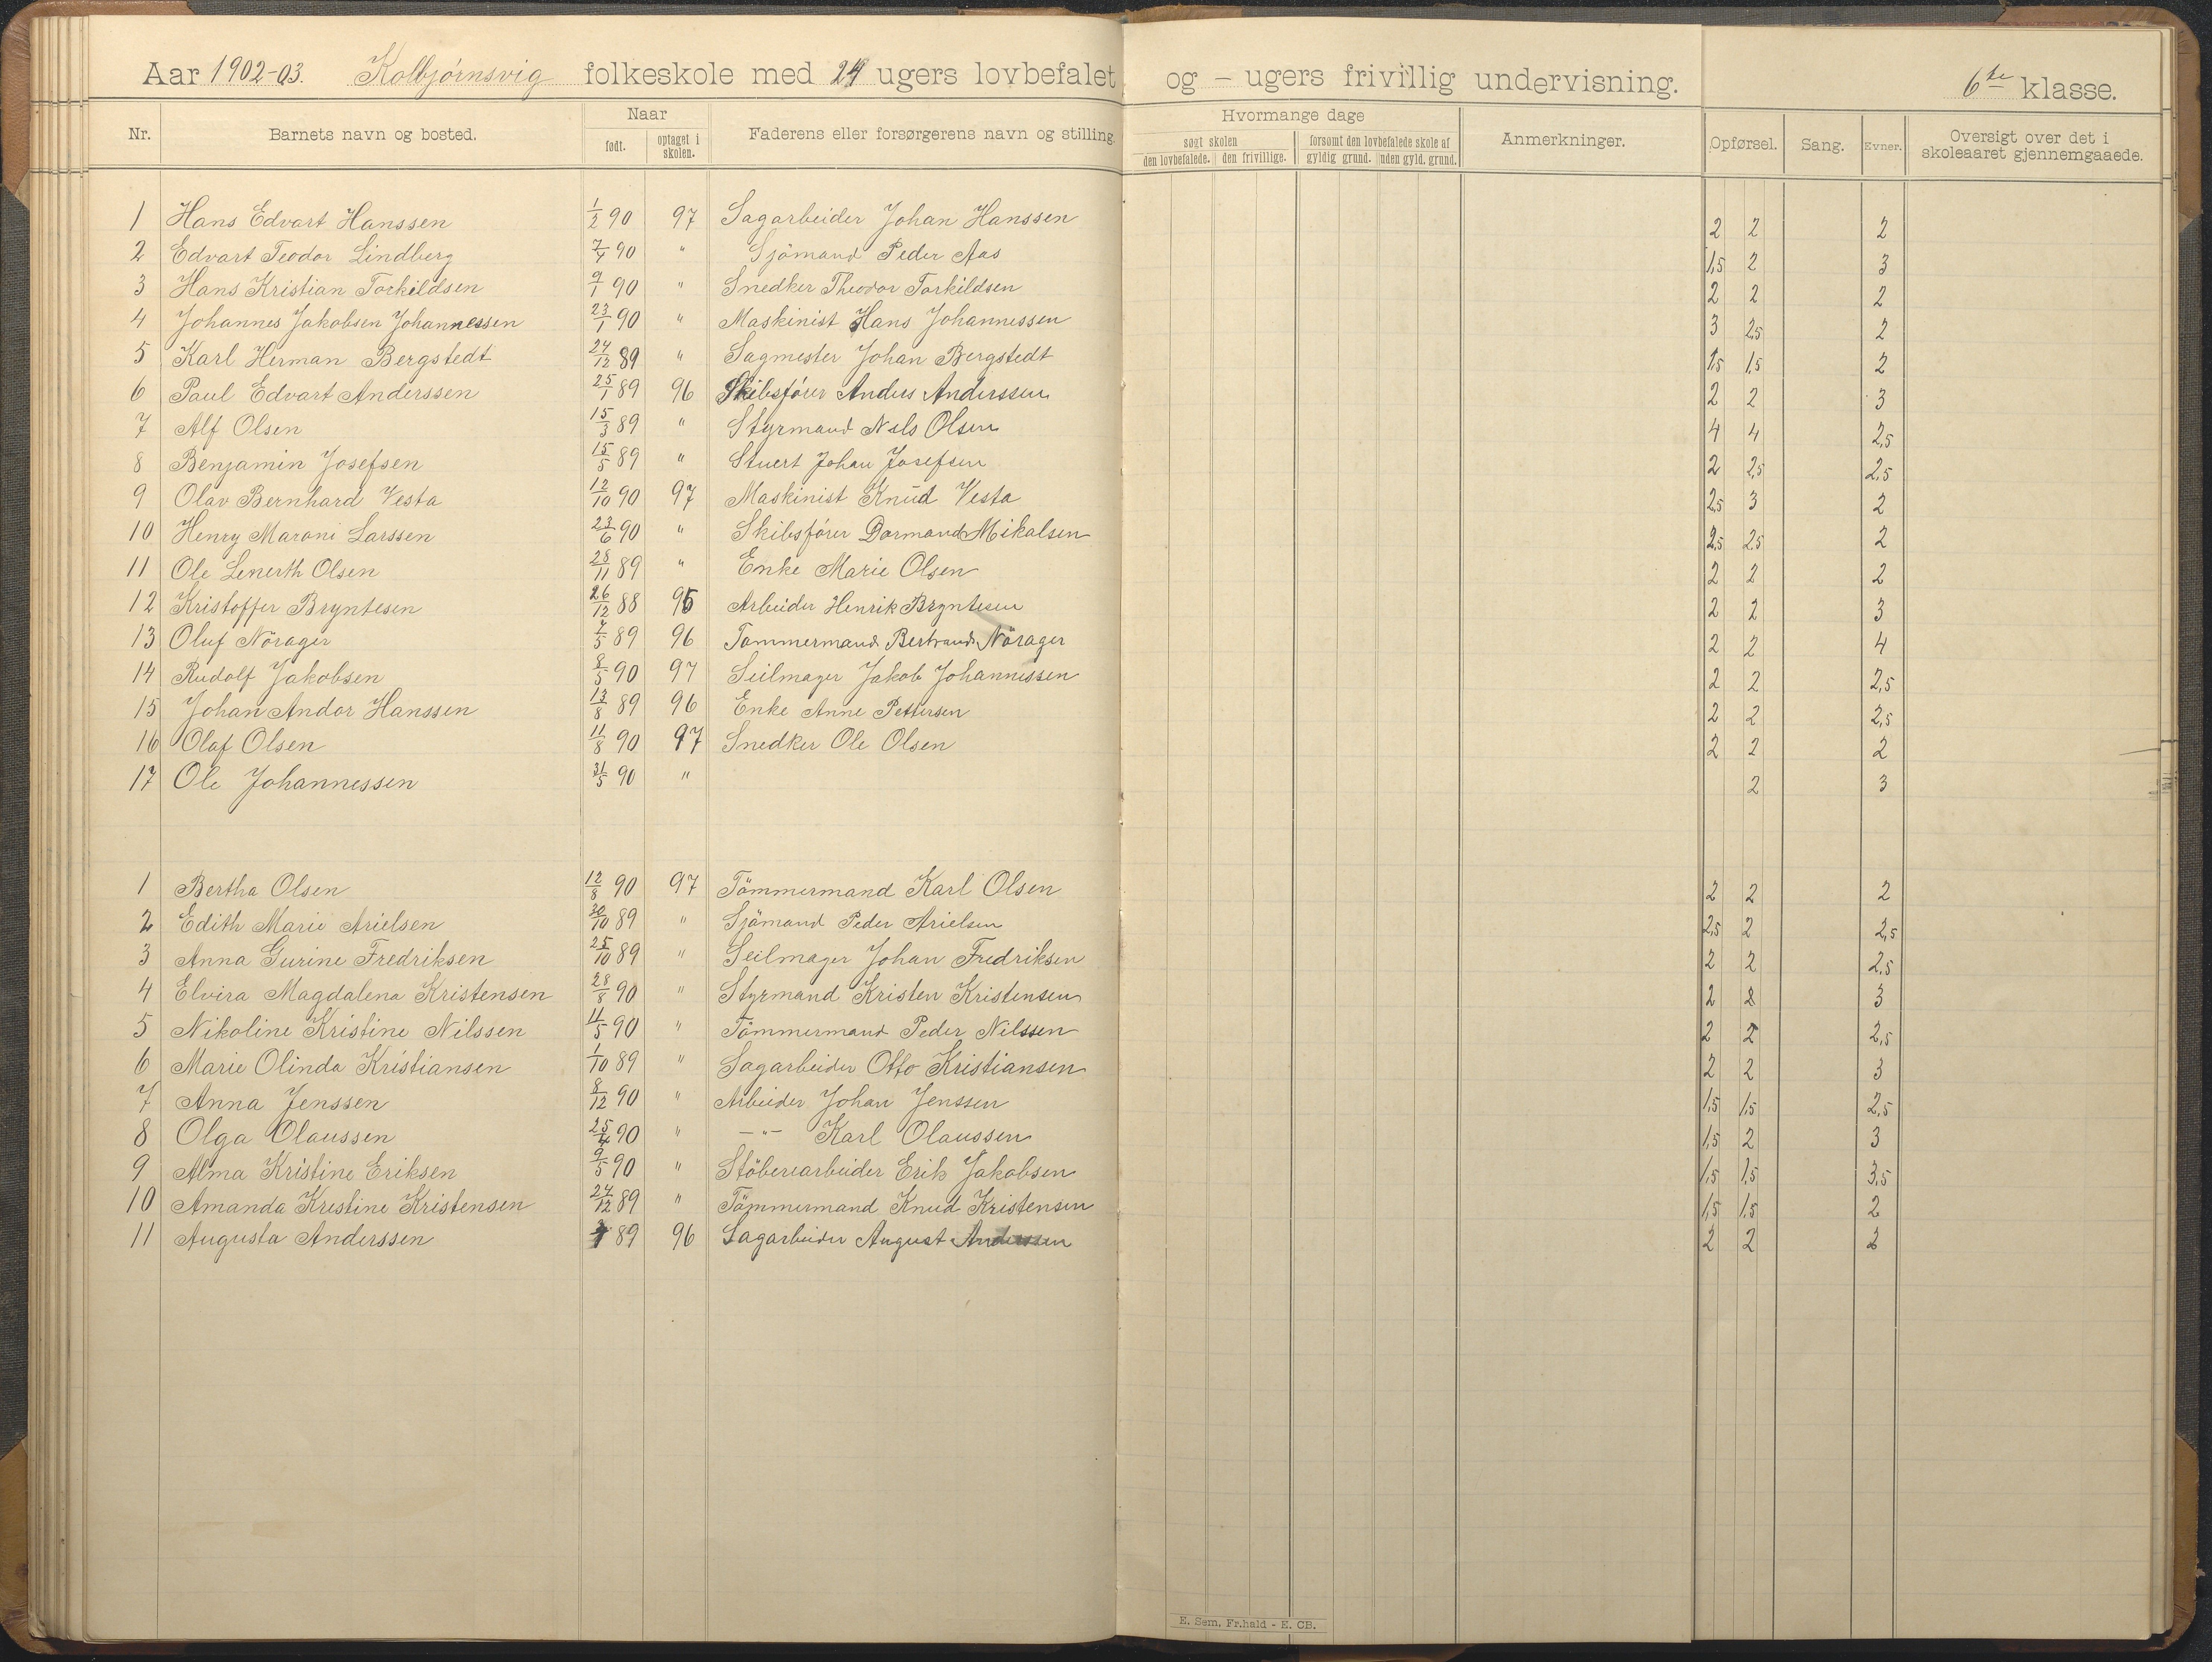 Aar 1902-03. Kolbjørnsvig folkeskole med 24 ugers lovbefalet og - ugers frivillig undervisning. 6te klasse.
Nr. Barnets navn og bosted. Naar født. optaget i skolen. Faderens eller forsørgerens navn og stilling. Hvormange dage søgt skolen den lovbefalede. den frivillige. forsømt den lovbefalede skole af gyldig grund. uden gyld. grund. Anmerkninger. Opførsel. Sang. Evner. Oversigt over det i skoleaaret gjennemgaaede.
1 Hans Edvart Hanssen 1/2 90 97 Sagarbeider Johan Hanssen 2 2 2
2 Edvart Teodor Lindberg 7/4 90 " Sjömand Peder Aas 1,5 2 3
3 Hans Kristian Torkildsen 9/1 90 " Snedker Theodor Torkildsen 2 2 2
4 Johannes Jakobsen Johannessen 23/1 90 " Maskinist Hans Johannessen 3 2,5 2
5 Karl Herman Bergstedt 24/12 89 " Sagmester Johan Bergstedt 1,5 1,5 2
6 Paul Edvart Anderssen 25/1 89 96 Skibsfører Anders Anderssen 2 2 3
7 Alf Olsen 15/3 89 " Styrmand Nils Olsen 4 4 2,5
8 Benjamin Josefsen 15/5 89 " Stuert Johan Josefsen 2 2,5 2,5
9 Olav Bernhard Vesta 12/10 90 97 Maskinist Knud Vesta 2,5 3 2
10 Henry Maroni Larssen 23/6 90 " Skibsfører Dormand Mikalsen 2,5 2,5 2
11 Ole Lenerth Olsen 28/11 89 " Enke Marie Olsen 2 2 2
12 Kristoffer Bryntesen 26/12 88 95 Arbeider Henrik Bryntesen 2 2 3
13 Oluf Nörager 7/5 89 96 Tømmermand Bertrand Nörager 2 2 4
14 Rudolf Jakobsen 8/5 90 97 Seilmager Jakob Johannessen 2 2 2,5
15 Johan Andor Hanssen 13/8 89 96 Enke Anne Pettersen 2 2 2,5
16 Olaf Olsen 11/8 90 97 Snedker Ole Olsen 2 2 2
17 Ole Johannessen 31/5 90 " 2 3
1 Bertha Olsen 12/8 90 97 Tömmermand Karl Olsen 2 2 2
2 Edith Marie Arielsen 30/10 89 " Sjömand Peder Arielsen 2,5 2 2,5
3 Anna Gurine Fredriksen 25/10 89 " Seilmager Johan Fredriksen 2 2 2,5
4 Elvira Magdalena Kristensen 28/8 90 " Styrmand Kristen Kristensen 2 2 3
5 Nikoline Kristine Nilssen 11/5 90 " Tömmermand Peder Nilssen 2 2 2,5
6 Marie Olinda Kristiansen 1/10 89 " Sagarbeider Otto Kristiansen 2 2 3
7 Anna Jenssen 8/12 90 " Arbeider Johan Jenssen 1,5 1,5 2,5
8 Olga Olaussen 25/4 90 " -"- Karl Olaussen 1,5 2 3
9 Alma Kristine Eriksen 9/5 90 " Stöberearbeider Erik Jakobsen 1,5 1,5 3,5
10 Amanda Kristine Kristensen 24/12 89 " Tömmermand Knud Kristensen 1,5 1,5 2
11 Augusta Anderssen 89 96 Sagarbeider August Anderssen 2 2 2
E. Sem, Fr.hald - E. CB.